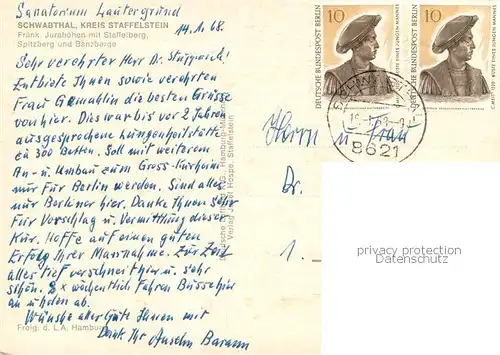 Sanatorium Lautergrund
SCHWABTHAL, KREIS STAFFELSTEIN
14.1.68.
Fränk. Jurahöhen mit Staffelberg,
Spitzberg und Banzberge
Sehr verehrter Herr Dr.
Entbiete Ihnen sowie verehrten
Frau Gemahlin die besten Grüsse
von hier. Dies war bis vor 2 Jahren
ausgesprochene Lungenheilstätte
zu 300 Betten. Soll mit weiterem
An- u. Umbau zum Gross-Kurheim
nur für Berlin werden. Sind alles
nur Berliner hier. Danke Ihnen sehr
für Vorschlag u. Vermittlung dieser
Kur. Hoffe auf einen guten
Erfolg Ihrer Massnahme. Zur Zeit
alles tief verschneit hier u. sehr
schön. x wöchentlich fahren Busse hier
an u.
Wünsche alles Gute Ihnen mit
Dank Ihr Anselm Baramn
Freig. d. L.A. Hamburg
Verlag Josef Hospe, Staffelstein
10
DEUTSCHE BUNDESPOST BERLIN
10
DEUTSCHE BUNDESPOST BERLIN
8621
Herrn u. Frau
Dr.
1.
privacy protection
Datenschutz